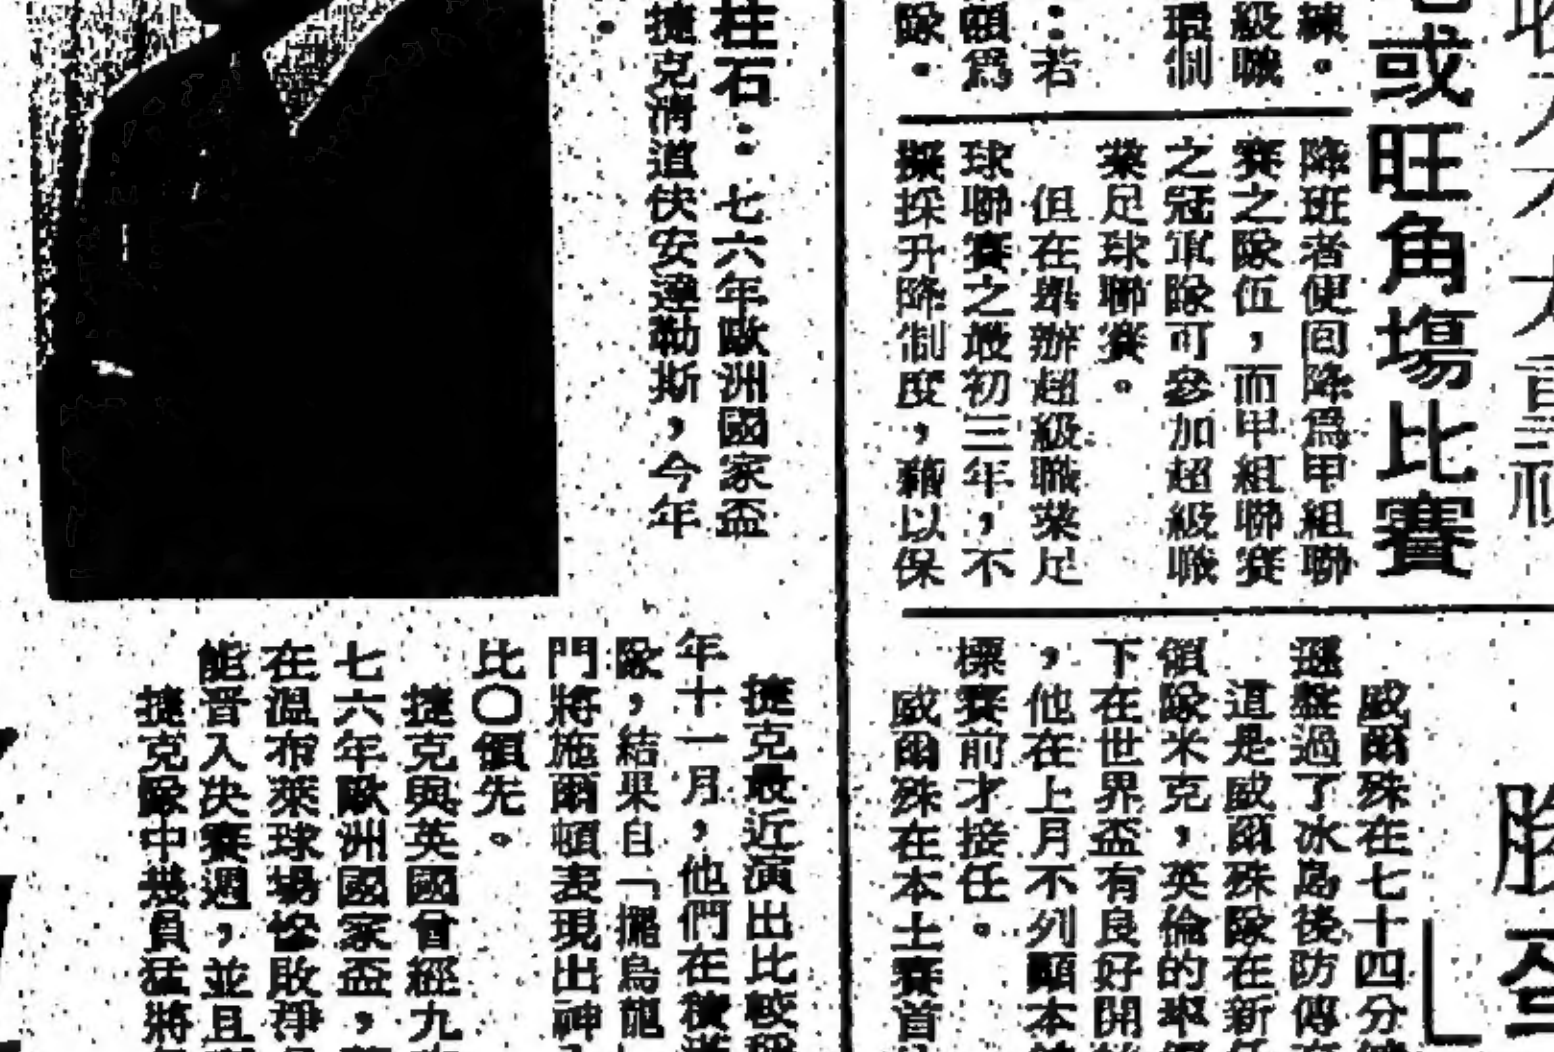 或旺角塲比賽
練。
級職
環制
：若
頗爲
隊。
降班者便囘降爲甲組聯
賽之隊伍，而甲組聯賽
之冠軍隊可參加超級職
業足球聯賽。
但在舉辦超級職業足
球聯賽之最初三年，不
擬採升降制度，藉以保
柱石：七六年歐洲國家盃
捷克淸道伕安達勒斯，今年
威爾殊在七十四分
過了冰島後防傳
道是威爾殊隊在新
領隊米克，英倫的
下在世界盃有良好開
，他在上月不列顚本
標賽前才接任。
威爾殊在本土賽首
捷克最近演出比較
年十一月，他們在
隊，結果自「擺烏龍
門將施爾頓表現出神
比〇領先。
捷克與英國曾經九
七六年歐洲國家盃，
在溫布萊球塲慘敗淨
能晋入決賽週，並且
捷克隊中幾員猛將